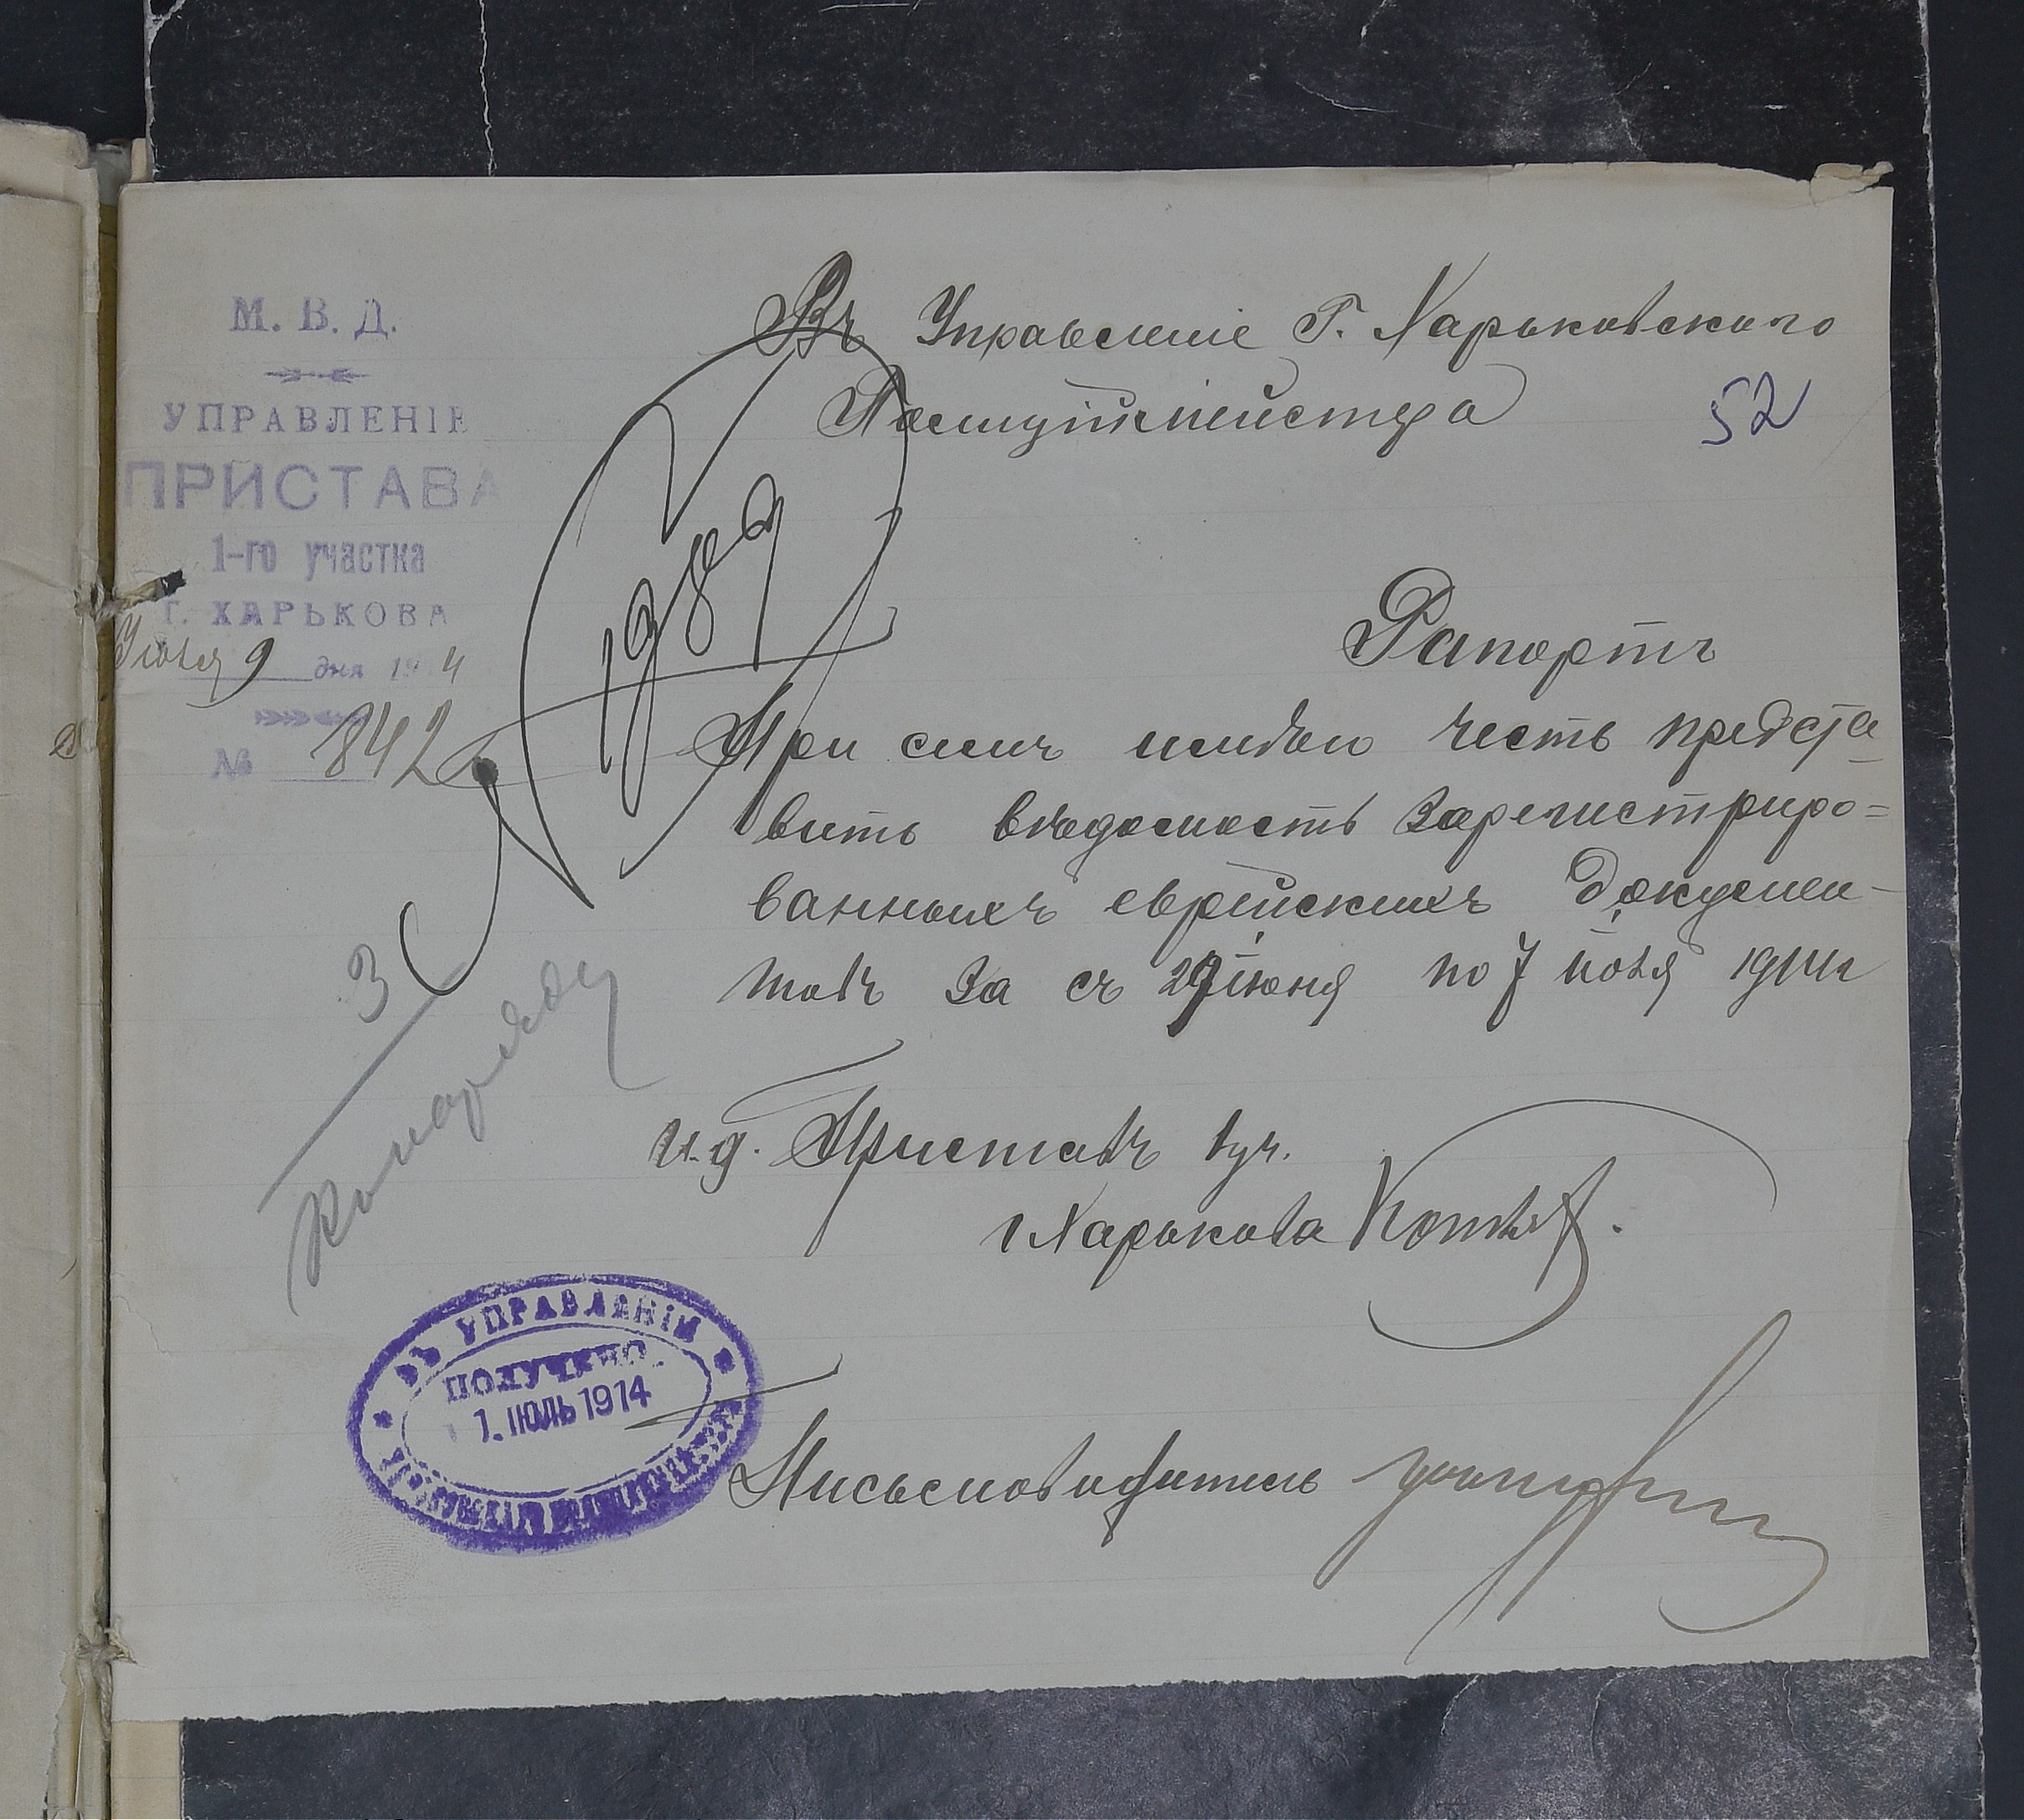 М. В. Д.
УПРАВЛЕНІЕ
ПРИСТАВА
1-го участка
Г. ХАРЬКОВА
Июля 9 дня 1914
№ 842
Въ Управленіе Г. Харьковского
Полицiймейстера
52
1989
Рапортъ
При семъ имѣю честь предста-
вить вѣдомость зарегистриро=
ванныхъ еврейскихъ докумен-
товъ за съ 29 іюня по 7 июля 1914 г
3
И.д. Приставъ 1 уч.
г Харькова
ВЪ УПРАВЛЕНІИ
ПОЛУЧЕНО
1. ІЮЛЬ 1914
Письмоводитель